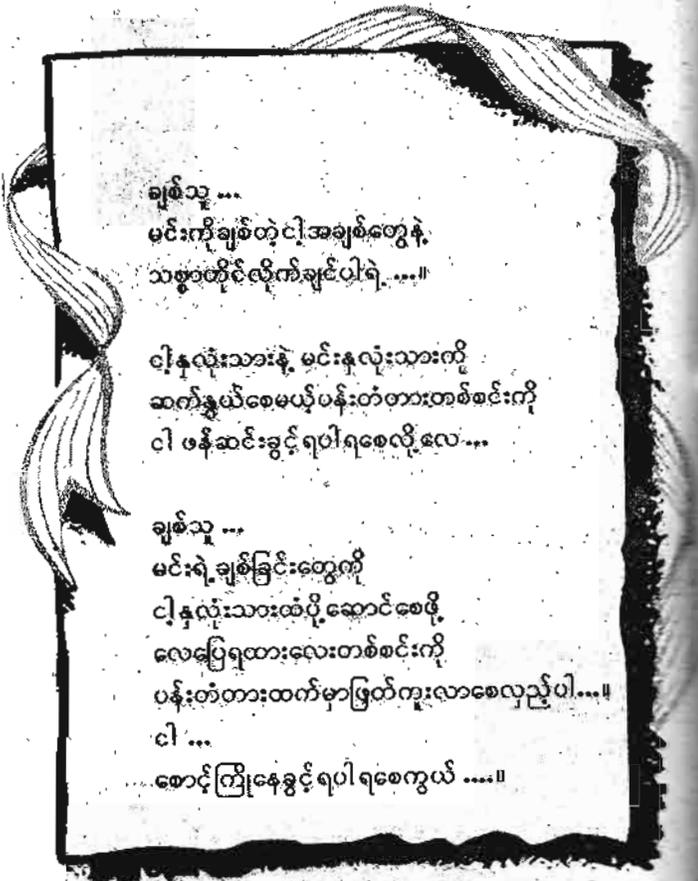 ချစ်သူ ...
မင်းကိုချစ်တဲ့ငါ့အချစ်တွေနဲ့
သစ္စာတိုင်လိုက်ချင်ပါရဲ့ ...။
ငါ့နှလုံးသားနဲ့ မင်းနှလုံးသားကို
ဆက်နွှယ်စေမယ့်ပန်းတံတားတစ်စင်းကို
ငါ ဖန်ဆင်းခွင့်ရပါရစေလို့လေ ...
ချစ်သူ ...
မင်းရဲ့ချစ်ခြင်းတွေကို
ငါ့နှလုံးသားထံပို့ဆောင်စေဖို့
လေပြေရထားလေးတစ်စင်းကို
ပန်းတံတားထက်မှာဖြတ်ကူးလာစေလှည့်ပါ...။
ငါ ...
စောင့်ကြိုနေခွင့်ရပါရစေကွယ် ....။